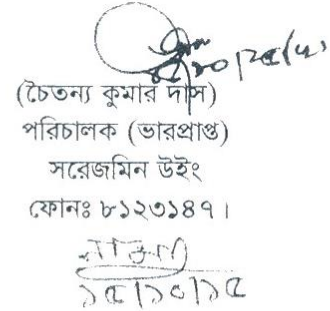 (চৈতন্য কুমার দাস)
পরিচালক (ভারপ্রাপ্ত)
সরেজমিন উইং
ফোনঃ ৮১২৩১৪৭।
১৫/১০/১৫